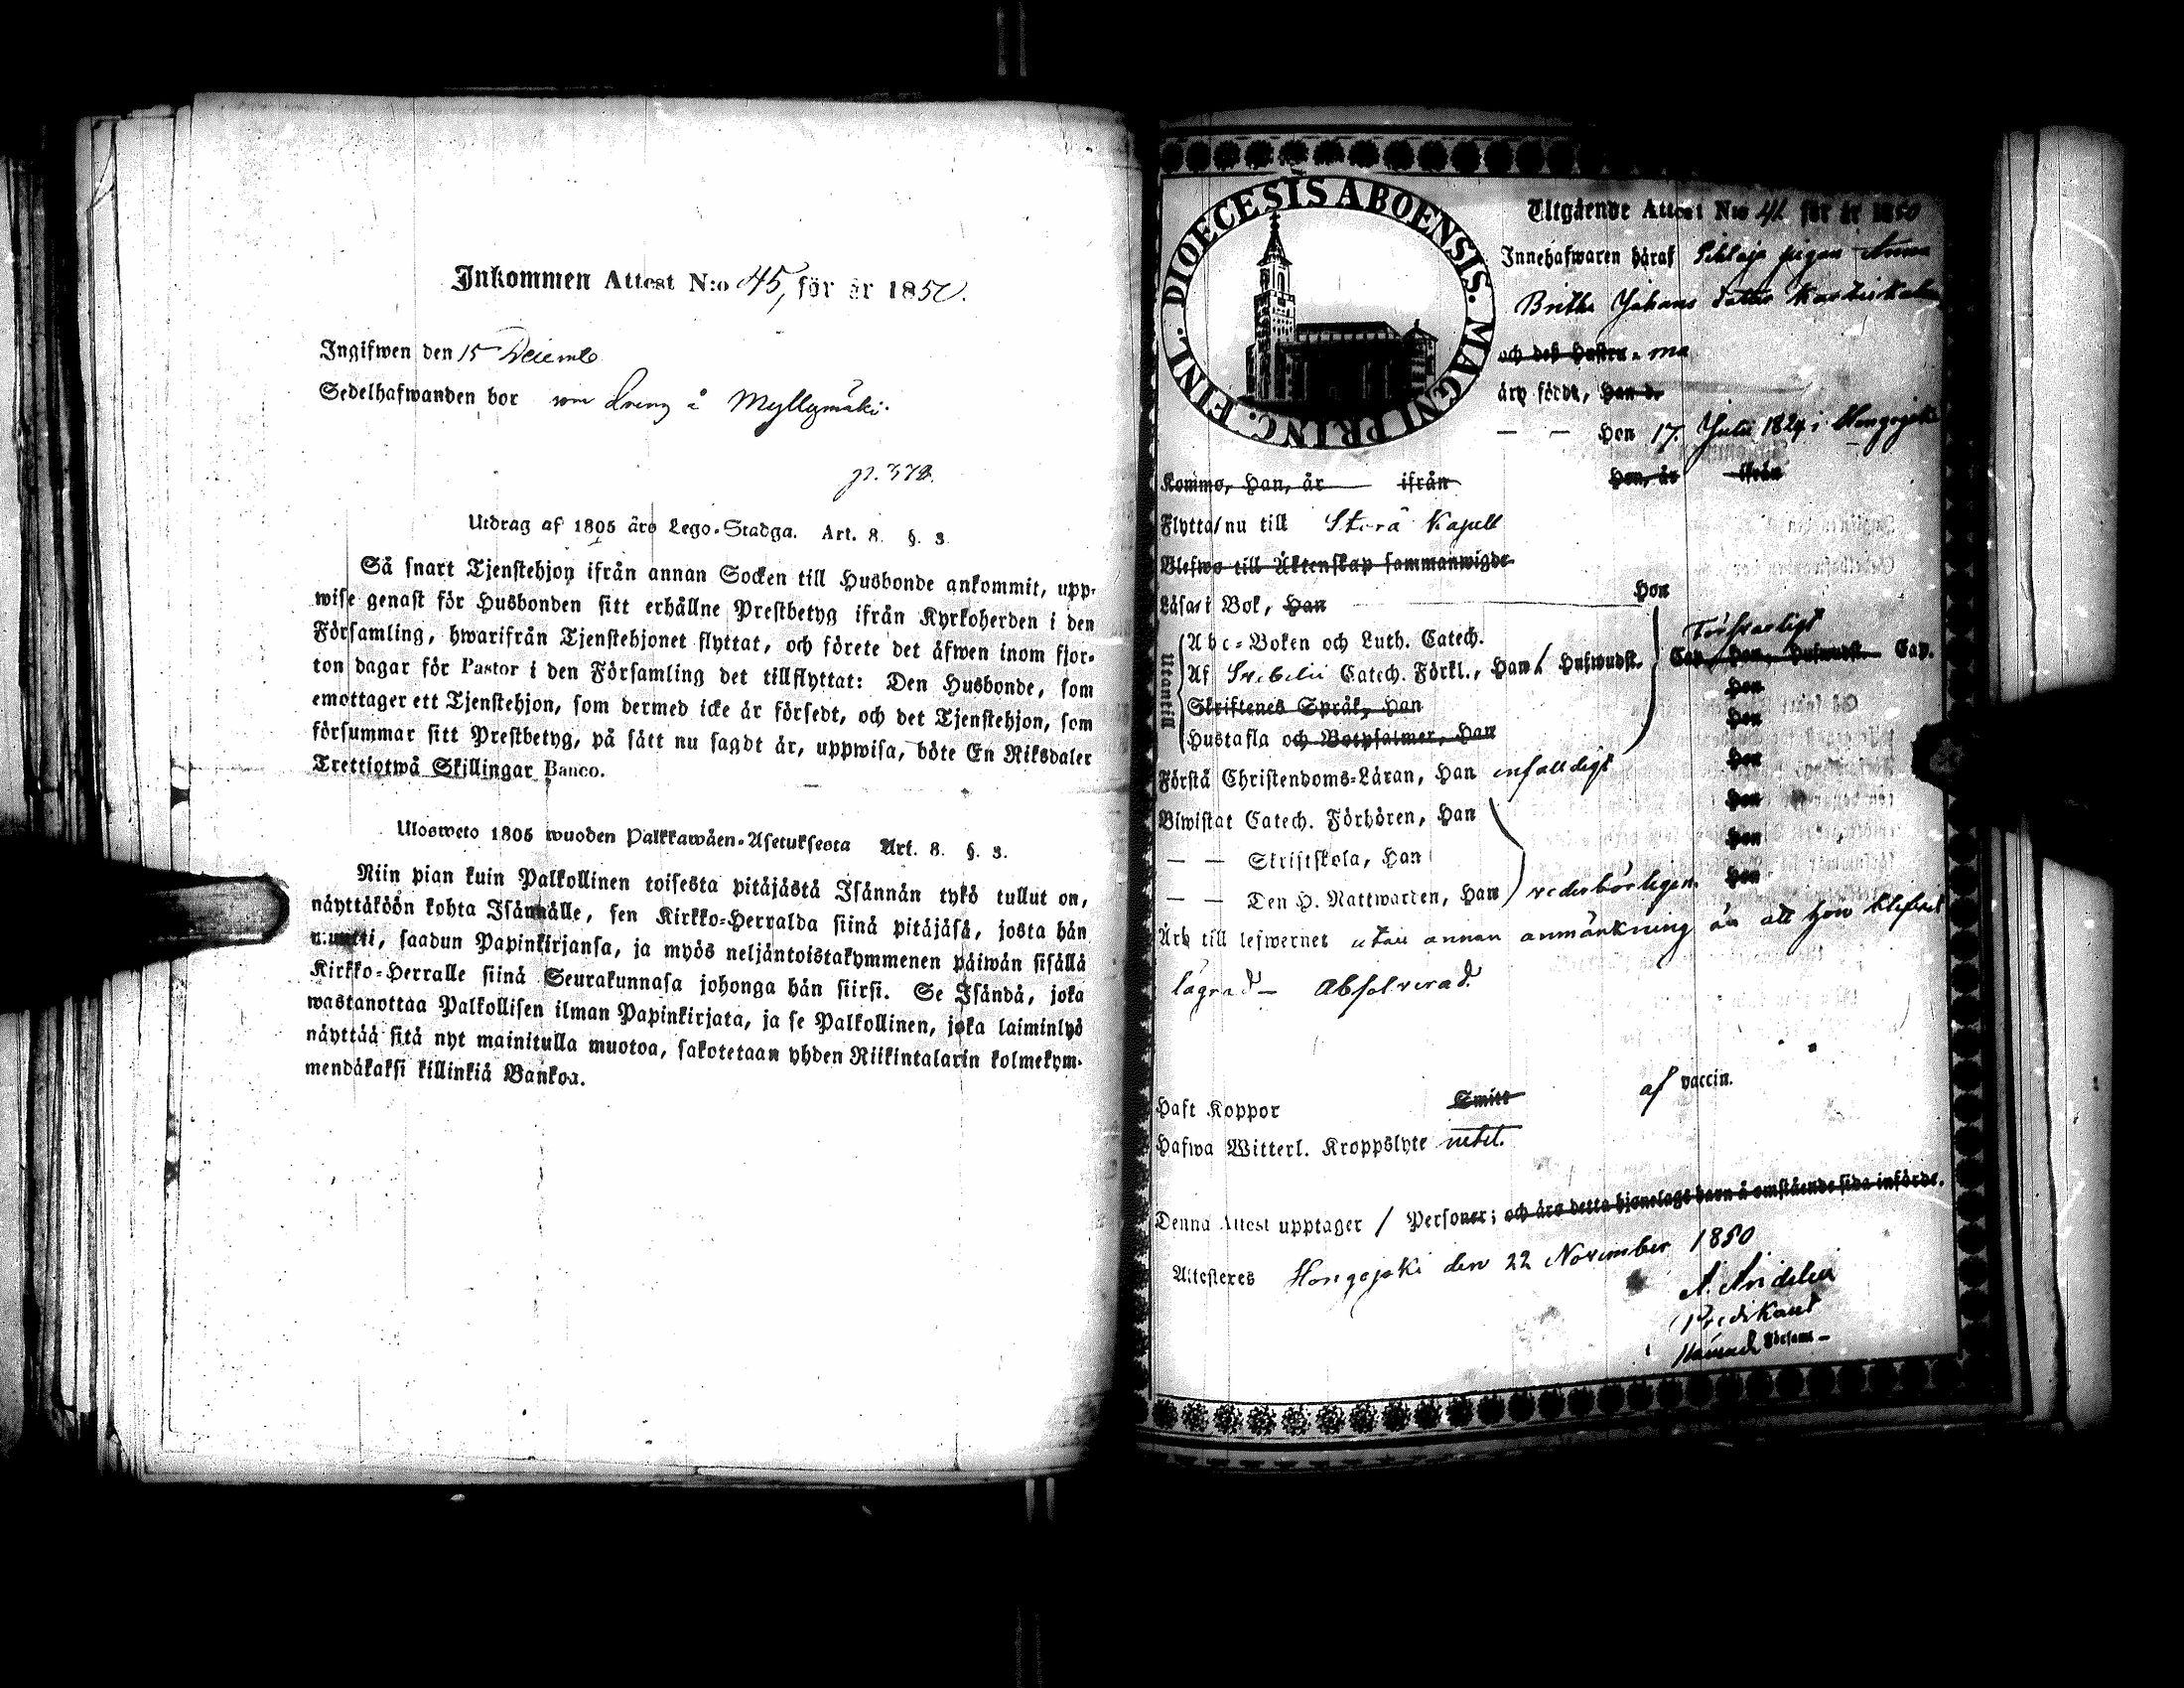 Inkommen Attest N:o 45, för år 1850.
Ingifwen den 15 Decemb
Sedelhafwanden bor som dreng å Myllymäki.
p. 378.
Utdrag af 1805 års Lego-Stadga. Art. 8. §. 3.
Så snart Tjenstehjon ifrån annan Socken till Husbonde ankommit, upp-
wise genast för Husbonden sitt erhållne Prestbetyg ifrån Kyrkoherden i den
Församling, hwarifrån Tjenstehjonet flyttat, och förete det äfwen inom fjor-
ton dagar för Pastor i den Församling det tillflyttat: Den Husbonde, som
emottager ett Tjenstehjon, som dermed icke är försedt, och det Tjenstehjon, som
försummar sitt Prestbetyg, på sätt nu sagdt är, uppwisa, böte En Riksdaler
Trettiotwå Skillingar Banco.
Ulosweto 1805 wuoden Palkkawäen-Asetuksesta Art. 8. §. 3.
Niin pian kuin Palkollinen toisesta pitäjästä Isännän tykö tullut on,
näyttäköön kohta Isännälle, sen Kirkko-Herralda siinä pitäjäsä, josta hän
muutti, saadun Papinkirjansa, ja myös neljäntoistakymmenen päiwän sisällä
Kirkko-Herralle siinä Seurakunnasa johonga hän siirsi. Se Isändä, joka
wastanottaa Palkollisen ilman Papinkirjata, ja se Palkollinen, joka laiminlyö
näyttää sitä nyt mainitulla muotoa, sakotetaan yhden Riikintalarin kolmekym-
mendäkaksi killinkiä Bankoa.
DIOECESIS ABOENSIS. MAGNI PRINC. FINL.
Utgående Attest N:o 41 för år 1850
Innehafwaren häraf pigan Anna
Britha Johans dotter
och deß Hustru
äro födde, Han d.
— — Hon 17. Julii 1824 i Hongojoki
Kommo, Han, år ifrån Hon, år ifrån
Flytta nu till Storå Kapell
Blefwo till Äktenskap sammanwigde
Läsa i Bok, Han Hon
Utantill
Abc-Boken och Luth. Catech. Försvarligt
Af Svebelii Catech. Förkl., Han Hufwudst. Cap. Han, Hufwudst. Cap.
Skriftenes Språk, Han Hon
Hustafla och Botpsalmer, Han Hon
Förstå Christendoms-Läran, Han enfalldigt Hon
Biwistat Catech. Förhören, Han Hon
— — Skriftskola, Han Hon
— — Den H. Nattwarden, Han vederbörligen. Hon
Äro till lefwernet utan annan anmärkning än att hon blifvit
lägrad — Absolverad.
Haft Koppor Smitt af vaccin.
Hafwa Witterl. Kroppslyte
Denna Attest upptager 1 Personer; och äro detta hjonelags barn å omstående sida införde.
Attesteres Hongojoki den 22 November 1850
Predikant